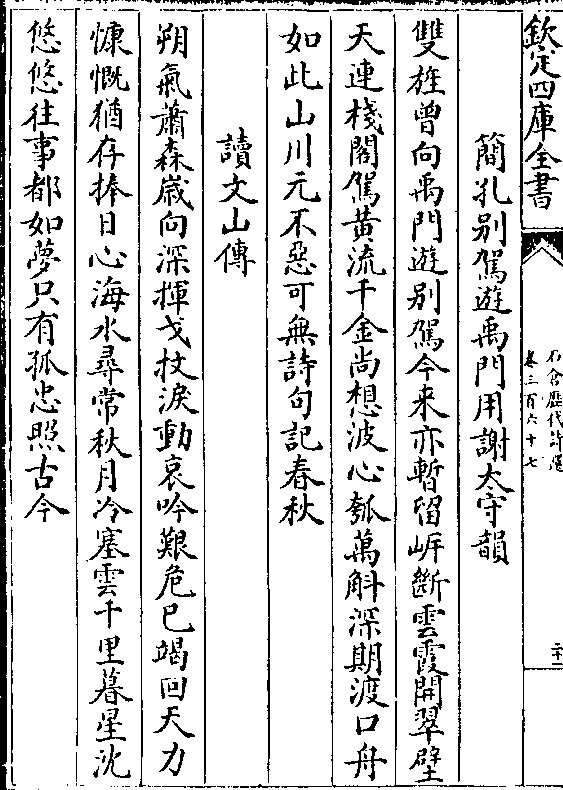 欽定四庫全書
石倉歷代詩選
卷三百六十七
二十一
簡孔别駕遊禹門用謝太守韻
雙旌曾向禹門遊别駕今来亦暫留㟁斷雲霞開翠壁
天連棧閣駕黄流千金尚想波心瓠萬斛深期渡口舟
如此山川元不惡可無詩句記春秋
讀文山傳
朔氣蕭森嵗向深揮戈抆淚動哀吟艱危已竭回天力
慷慨猶存捧日心海水尋常秋月冷塞雲千里暮星沈
悠悠往事都如夢只有孤忠照古今